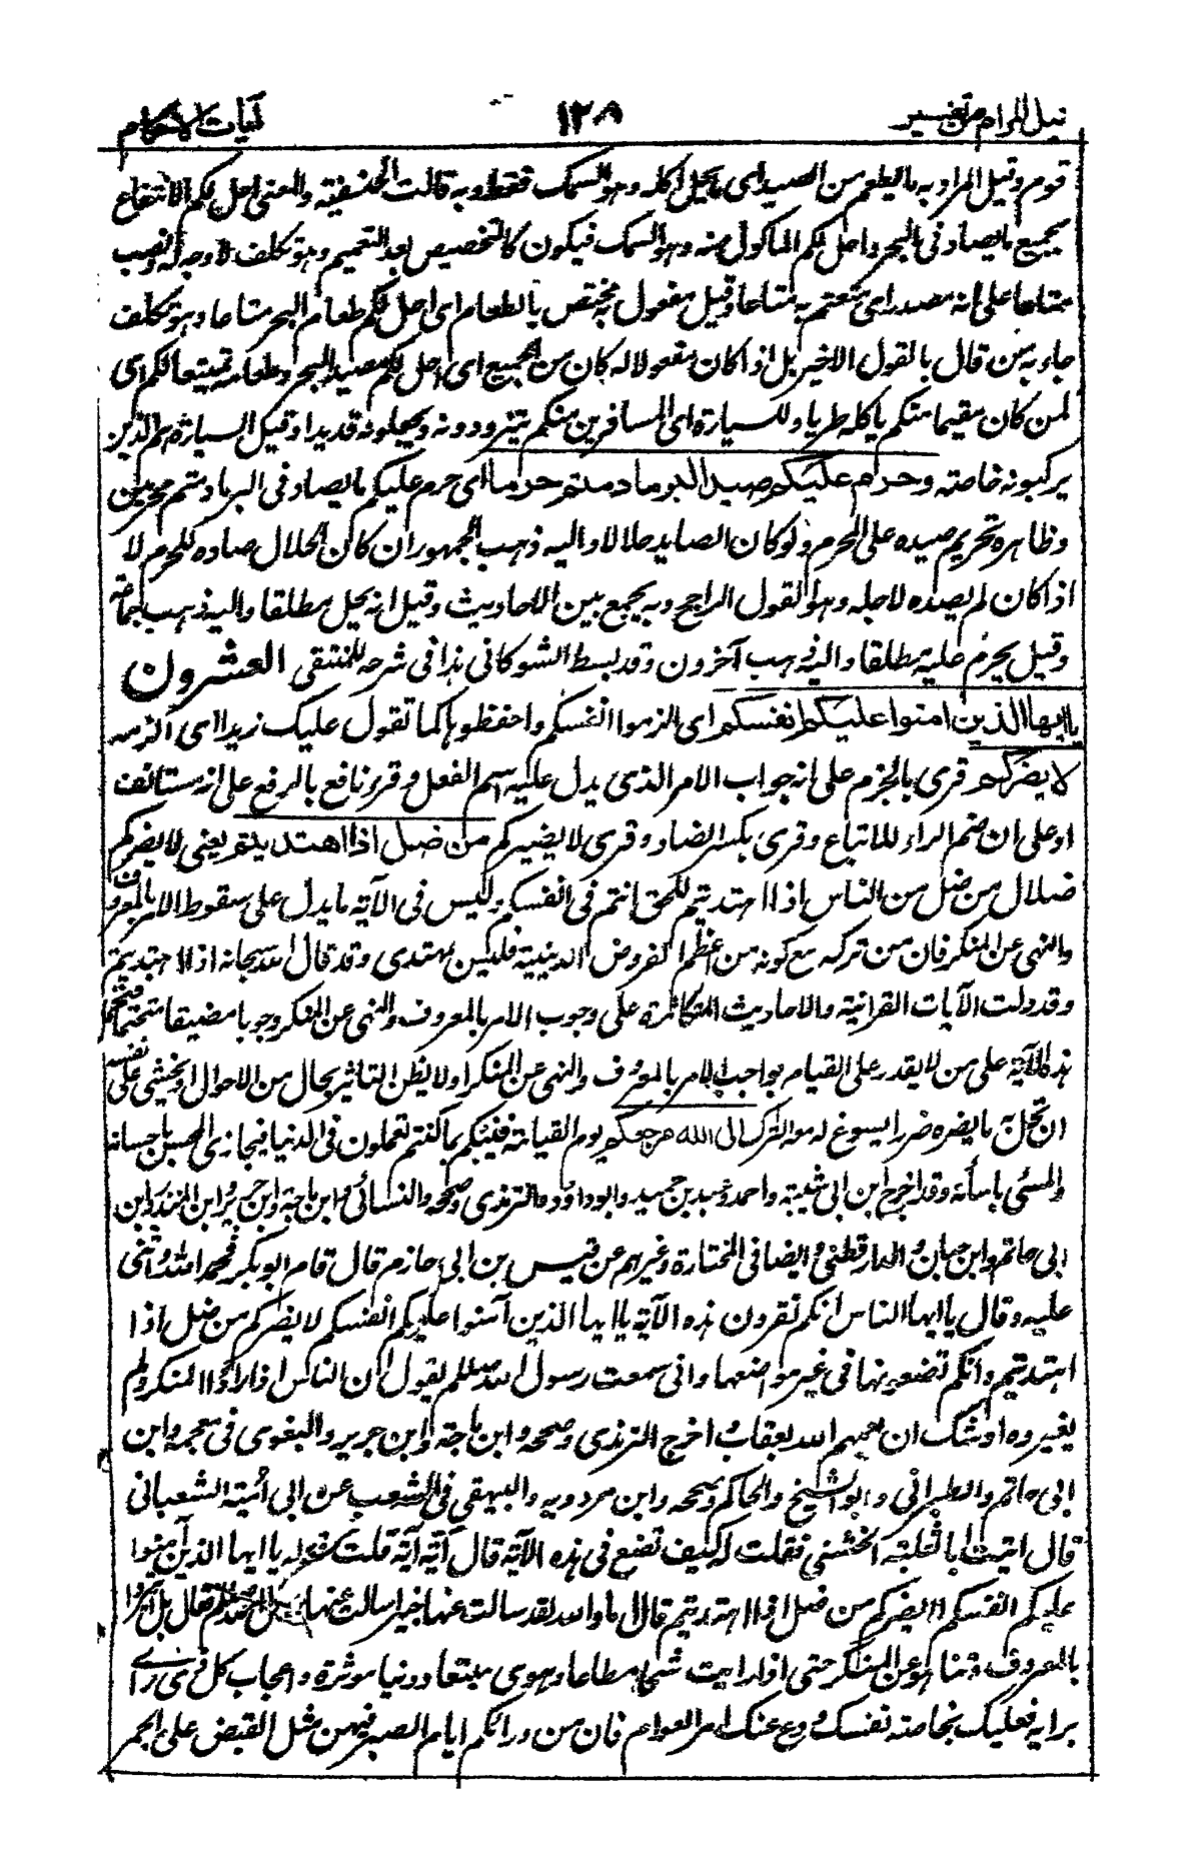 نيل المرام من تفسير ١٢٨ آيات الاحكام
قوم وقيل المراد به ما يطعم من الصيد اى ما يحل اكله وهو السمك فقط وبه قالت الحنفية والمعنى احل لكم الانتفاع
بجميع ما يصاد فى البحر واحل لكم الماكول منه وهو السمك فيكون كالتخصيص بعد التعميم وهو تكلف لا وجه له ونصب
متاعا على انه مصدر اى متعتم به متاعا وقيل مفعول مختص بالطعام اى احل لكم طعام البحر متاعا وهو تكلف
جاء به من قال بالقول الاخير بل اذا كان مفعولا له كان من الجميع اى احل لكم صيد البحر وطعامه تمتيعا لكم اى
لمن كان مقيما منكم ياكله طريا وللسيارة اى المسافرين منكم يتزودونه ويجعلونه قديدا وقيل السيارة هم الذين
يركبونه خاصة وحرم عليكم صيد البر ما دمتم حرما اى حرم عليكم ما يصاد فى البر ما دمتم محرمين
وظاهره تحريم صيده على المحرم ولو كان الصايد حلالا واليه ذهب الجمهور ان كان الحلال صاده للمحرم لا
اذا كان لم يصده لاجله وهو القول الراجح وبه يجمع بين الاحاديث وقيل انه يحل مطلقا واليه ذهب جماعة
وقيل يحرم عليه مطلقا واليه ذهب آخرون وقد بسط الشوكانى هذا فى شرحه للمنتقى العشرون
يا ايها الذين امنوا عليكم انفسكم اى الزموا انفسكم واحفظوها كما تقول عليك زيدا اى الزمه
لا يضركم قرى بالجزم على انه جواب الامر الذى يدل عليه اسم الفعل وقرء نافع بالرفع على انه مستانف
او على ان ضم الراء للاتباع وقرى بكسر الضاد وقرى لا يضيركم من ضل اذا اهتديتم يعنى لا يضركم
ضلال من ضل من الناس اذا اهتديتم للحق انتم فى انفسكم وليس فى الآية ما يدل على سقوط الامر بالمعروف
والنهى عن المنكر فان من تركه مع كونه من اعظم الفروض الدينية فليس بمهتدى وقد قال الله سبحانه اذا اهتديتم
وقد دلت الآيات القرانية والاحاديث المتكاثرة على وجوب الامر بالمعروف والنهى عن المنكر وجوبا مضيقا متحتما فتحمل
هذه الآية على من لا يقدر على القيام بواجب الامر بالمعروف والنهى عن المنكر او لا يظن التاثير بحال من الاحوال او يخشى على نفسه
ان تحل به ما يضره ضررا يسوغ له معه الترك الى الله مرجعكم يوم القيامة فينبئكم بما كنتم تعملون فى الدنيا فيجازى المحسن باحسانه
والمسئ باساءته وقد اخرج ابن ابى شيبة واحمد وعبد بن حميد وابو داود والترمذى وصححه والنسائى وابن ماجة وابن جرير وابن المنذر وابن
ابى حاتم وابن حبان والدارقطنى والضيا فى المختارة وغيرهم عن قيس بن ابى حازم قال قام ابو بكر فحمد الله واثنى
عليه وقال يا ايها الناس انكم تقرءون هذه الآية يا ايها الذين آمنوا عليكم انفسكم لا يضركم من ضل اذا
اهتديتم وانكم تضعونها فى غير مواضعها وانى سمعت رسول الله صلعم يقول ان الناس اذا راوا المنكر ولم
يغيروه اوشك ان يعمهم الله بعقاب واخرج الترمذى وصححه وابن ماجة وابن جرير والبغوى فى معجمه وابن
ابى حاتم والطبرانى وابو الشيخ والحاكم وصححه وابن مردويه والبيهقى فى الشعب عن ابى امية الشعبانى
قال اتيت ابا ثعلبة الخشنى فقلت له كيف تصنع فى هذه الآية قال آية آية قلت قوله يا ايها الذين آمنوا
عليكم انفسكم لا يضركم من ضل اذا اهتديتم قال اما والله لقد سالت عنها خبيرا سالت عنها صلعم قال بل ائتمروا
بالمعروف وتناهوا عن المنكر حتى اذا رايت شحا مطاعا وهوى متبعا ودنيا موثرة واعجاب كل ذى راى
برايه فعليك بخاصة نفسك ودع عنك امر العوام فان من ورائكم ايام الصبر فيهن مثل القبض على الجمر